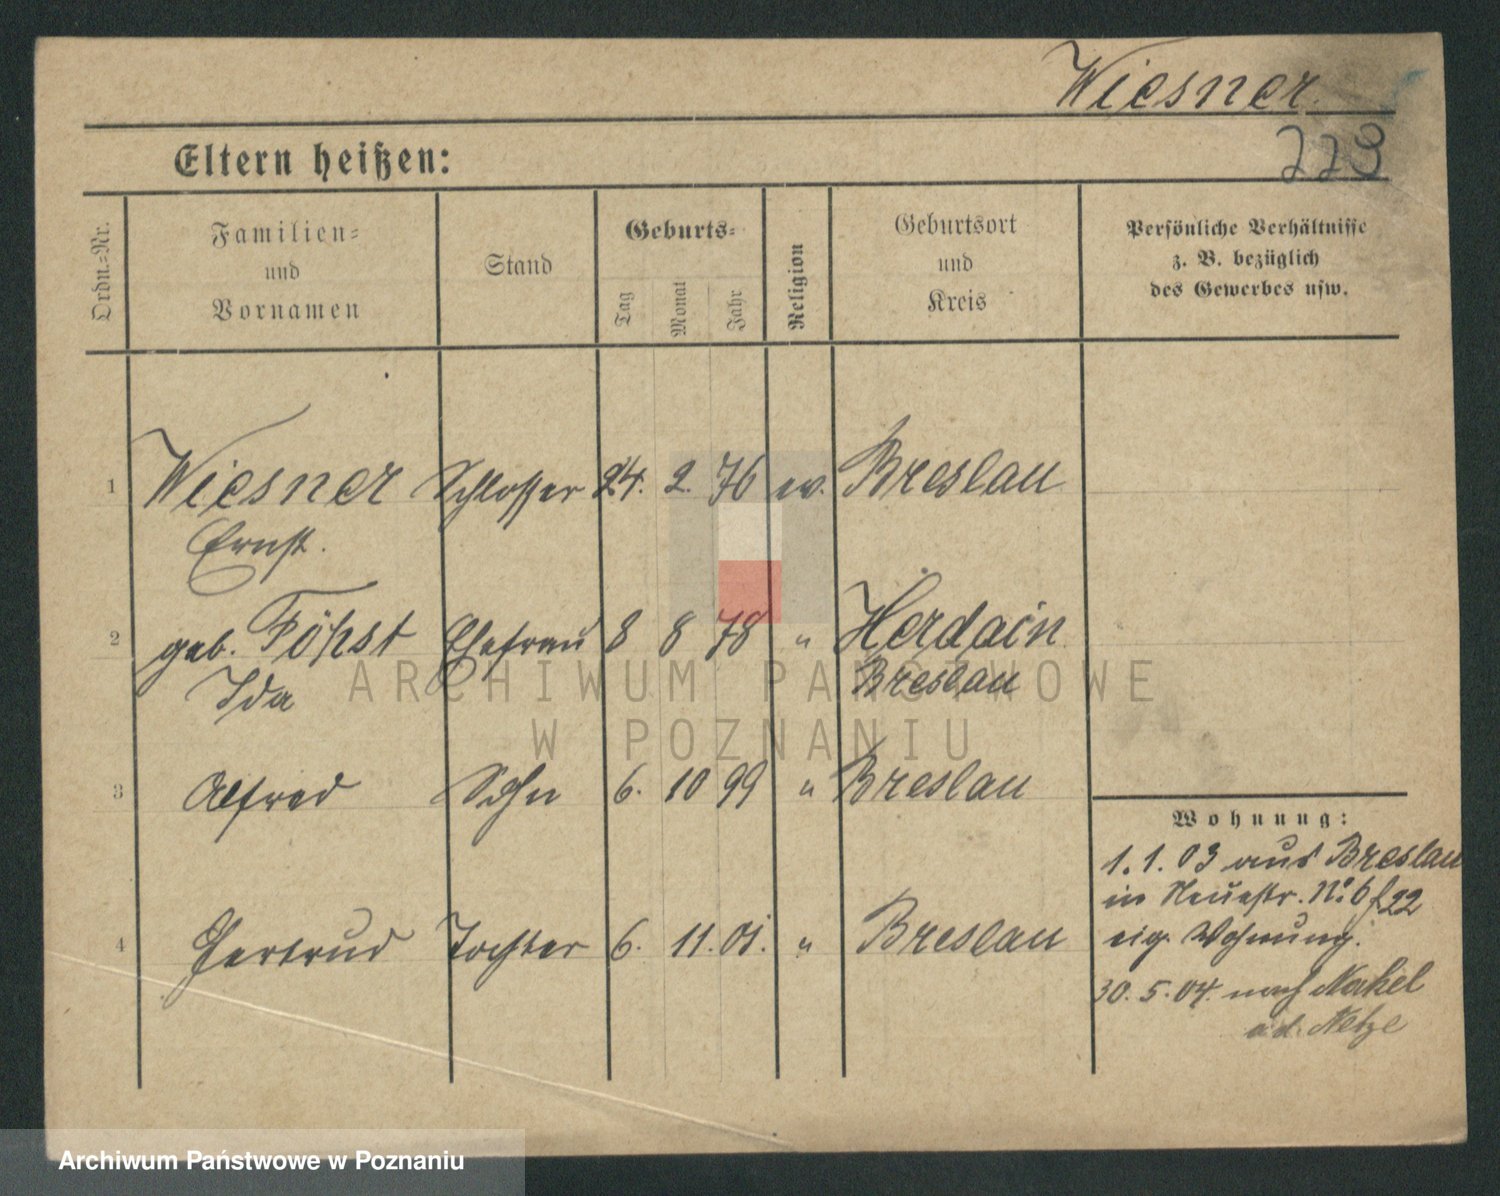 Wiesner.
223
Eltern heißen:
Ordn.-Nr.
Familien-
und
Vornamen
Stand
Geburts-
Tag
Monat
Jahr
Religion
Geburtsort
und
Kreis
Persönliche Verhältnisse
z. B. bezüglich
des Gewerbes usw.
1 Wiesner Schlosser 24. 2. 76 ev. Breslau
Ernst.
2 geb. Föhst Ehefrau 8 8 78 " Herdain
Ida Breslau
3 Alfred Sohn 6. 10 99 " Breslau
4 Gertrud Tochter 6. 11. 01. " Breslau
Wohnung:
1. 1. 03 aus Breslau
in Neuestr. No 6
eig. Wohnung.
30. 5. 04. nach Nakel
a.d. Netze
ARCHIWUM PAŃSTWOWE
W POZNANIU
Archiwum Państwowe w Poznaniu